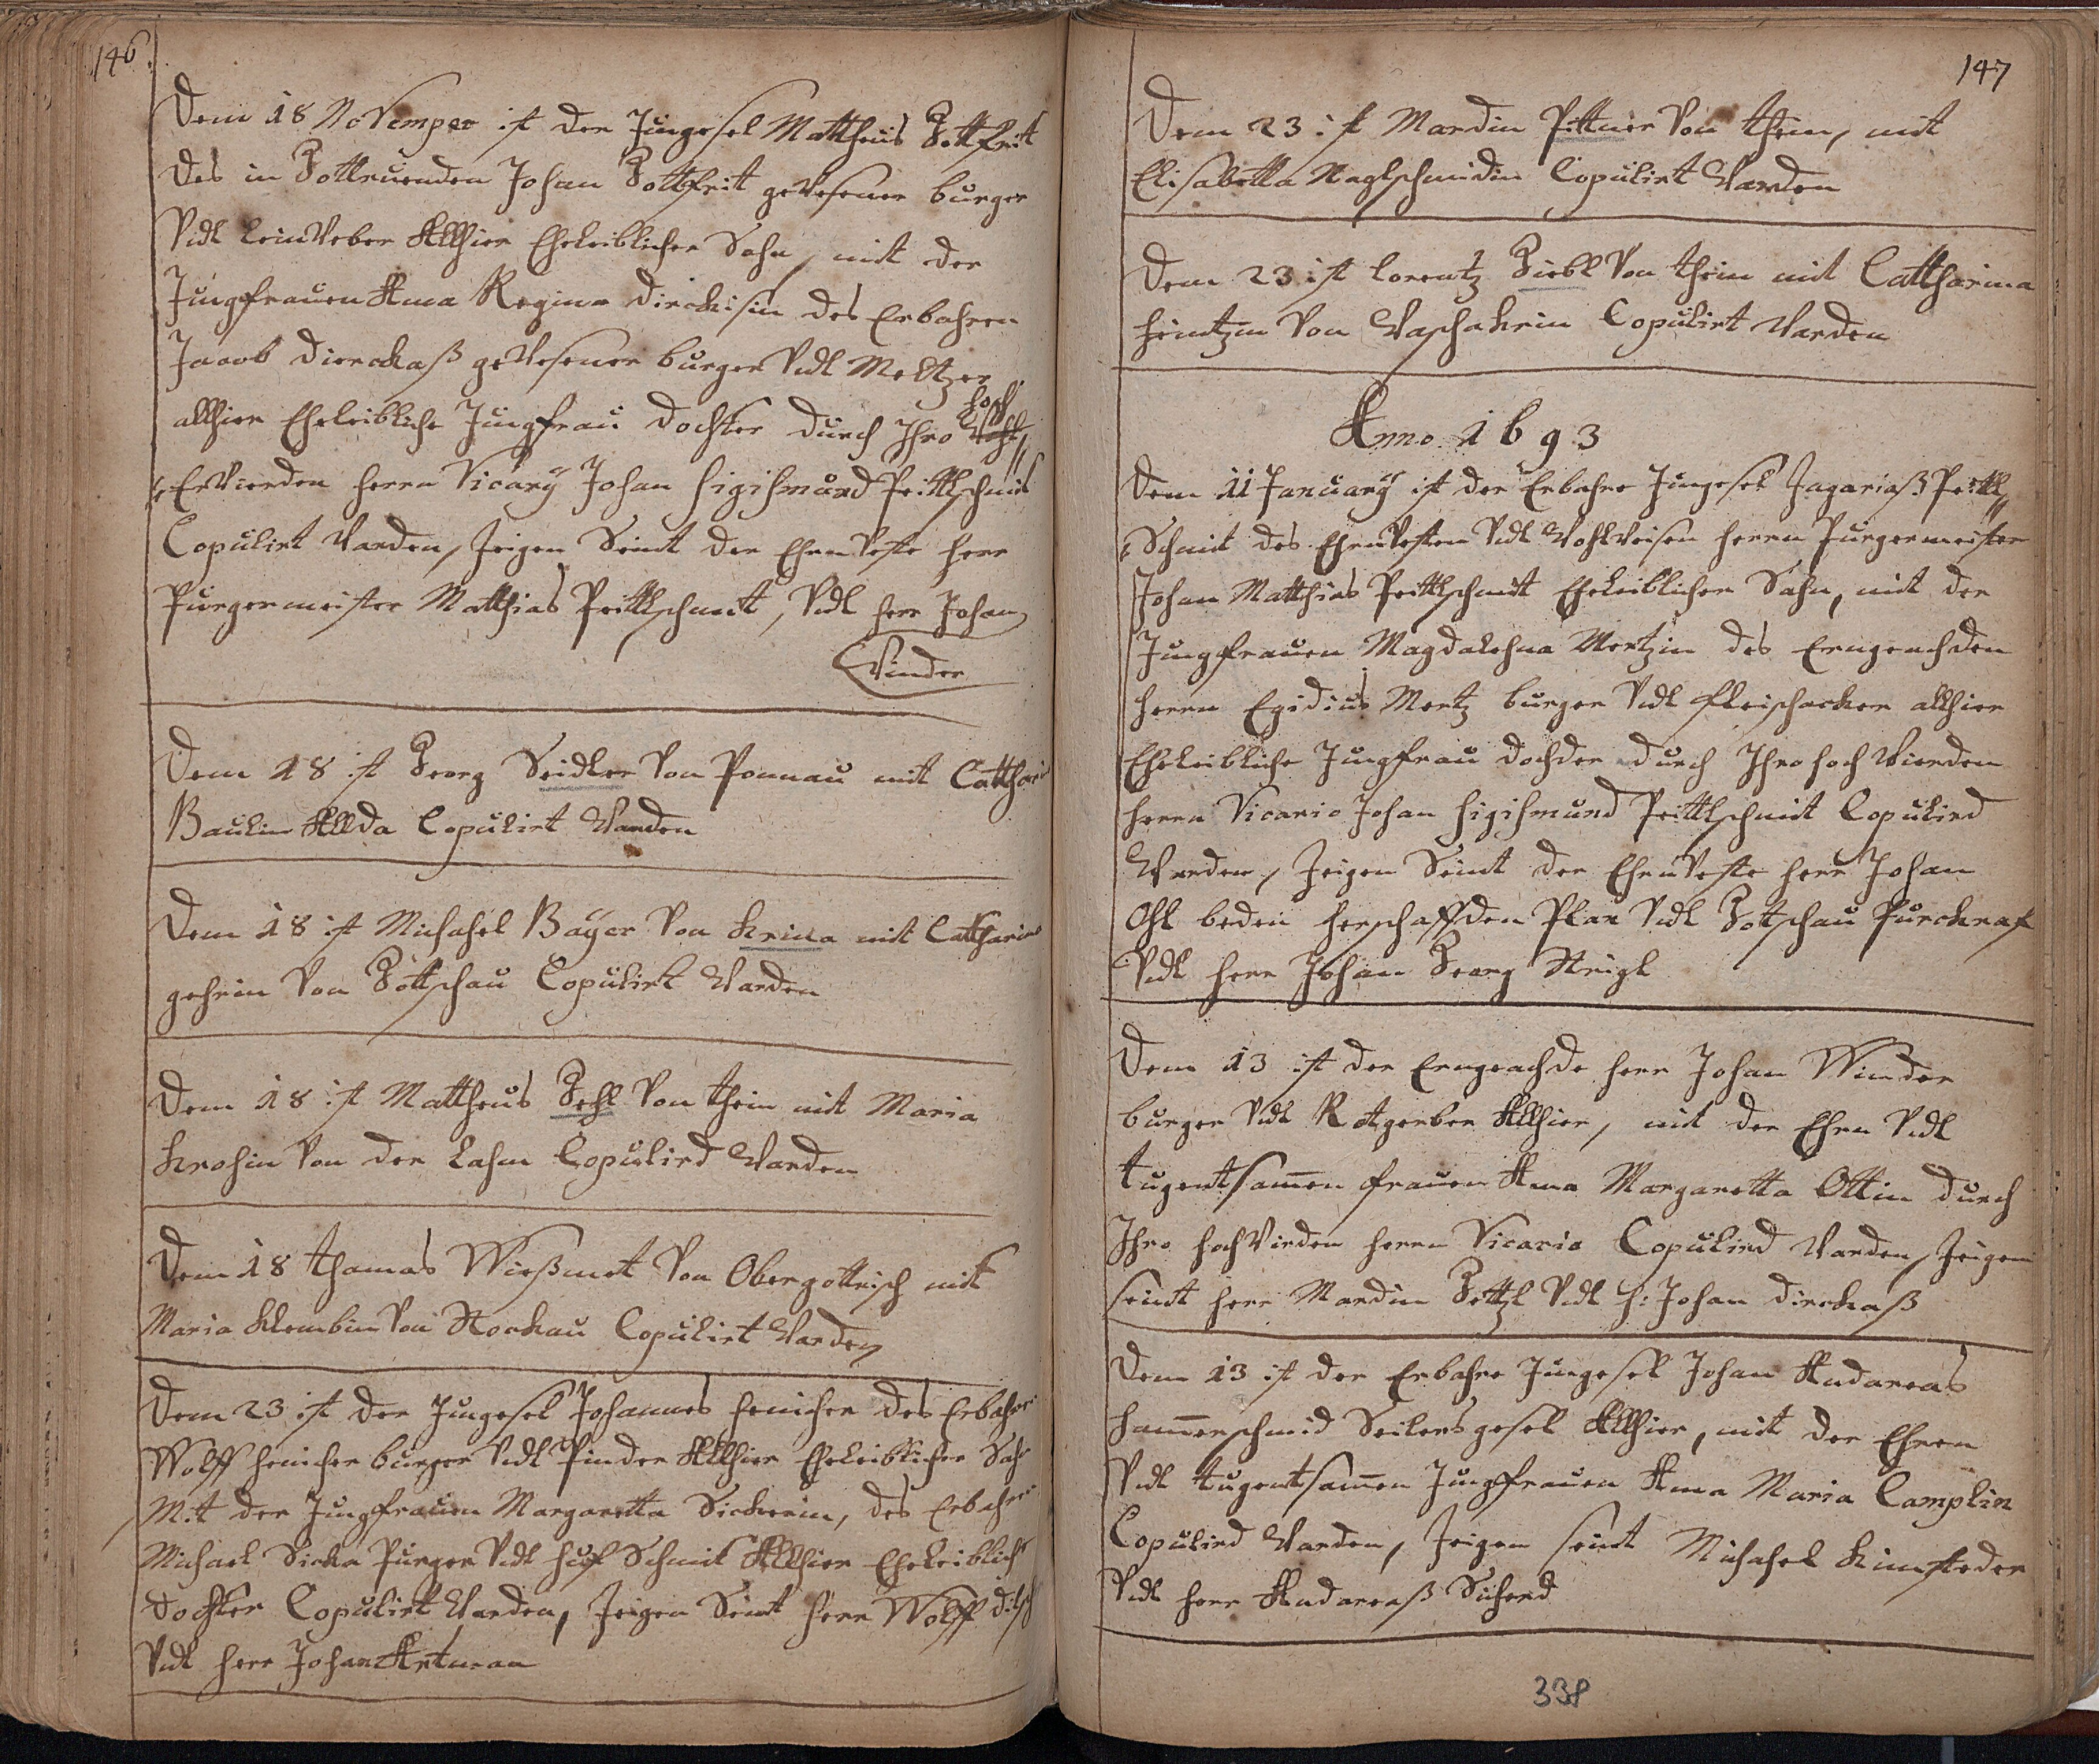 146.
Dem 18 November ist der Jungesel Mattheus Gottfrit
des in Gottruenden Johan Gottfrit gewesener burger
Vndt leinweber Allhier Eheleiblicher Sohn, mit der
Jungfrauen Anna Regina Dirckisin des Erbahren
Jacob Dierckaß gewesener burger Vndt Meltzer
allhier Eheleibliche Jungfrau dochter durch Ihro hoch
Erwierden herrn Vicary Johan Sigismund Peittlschmit
Copulirt Warden, Zeigen Seint der Ehrnveste herr
Purgermeister Matthias Peittlschmit, Vndt herr Johan
Winder
Dem 18 ist Georg Seidler Von Ponnau mit Catthari
Baulin Allda Copulirt Warden
Dem 18 ist Michahel Bayer Von Krina mit Catharina
Von Gottschau Copulirt Warden
Dem 18 ist Mattheus Gehl Von thein mit Maria
Krohin Von der Lahm Copulird Warden
Dem 18 thamas Wießmet Von Obergottrisch mit
Maria Klembin Von Stockau Copulirt Warden
Dem 23 ist der Jungesel Johannes Henicher des Erbahren
Wolff Henicher burger Vndt Pinder Allhier Eheleiblicher Sohn
Mit der Jungfrauen Margaretta Sickerin, des Erbahren
Michael Sicka Purger Vndt huf Schmit Allhier Eheleibliche
dochter Copulirt Warden, Zeigen Seint herr Wolff
Vndt herr Johan Artman
147
Dem 23 ist Mardin Pittner Von thein, mit
Elisabetta Naglschmidin Copulirt Warden
Dem 23 ist lorentz Giebl Von thein mit Cattharina
heintzin Von Copulirt Warden
Anno 1693
Dem 11 January ist der Erbahre Jungesel Zagariaß Peittl
Schmit des Ehrnvesten Vndt Wohlweisen herrn Purgermeister
Johan Matthias Peittlschmit Eheleiblicher Sohn, mit der
Jungfrauen Magdalehna Mertzin des Erngeachden
herrn Egidius Mertz burger Vndt fleischacker allhier
Eheleibliche Jungfrau dochder durch Ihro hoch Wierden
herrn Vicario Johan Sigismund Peittlschmit Copulird
Warden, Zeigen Seint der Ehrnveste herr Johan
Ohl beden herschaffden Plan Vndt Gottschau Purckraf
Vndt herr Johan Georg Steigl
Dem 13 ist der Erngeachde herr Johan Winder
burger Vndt Rotgerber Allhier, mit der Ehrn Vndt
tugentsamen frauen Anna Margaretta Ottin durch
Ihro hochwirden herrn Vicario Copulird Warden, Zeigen
seint herr Mardin Gettzl Vndt h: Johan Dirckaß
Dem 13 ist der Erbahre Jungesel Johan Andareas
hamerschmid Seilersgesel Allhier, mit der Ehren
Vndt tugentsamen Jungfrauen Anna Maria Camplin
Copulird Warden, Zeigen seint Michahel
Vndt herr Andareaß Sicherd
338